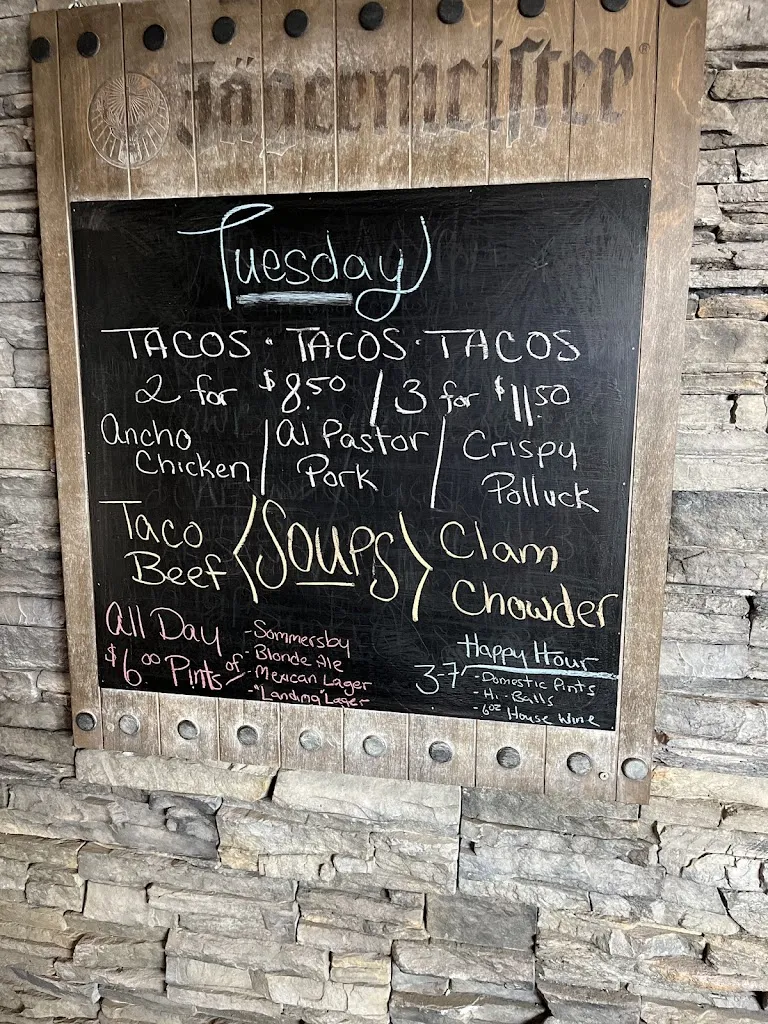 Jägermeister
Tuesday
TACOS · TACOS · TACOS
2 for $8.50 / 3 for $11.50
Ancho Chicken / Al Pastor Pork / Crispy Polluck
Taco Beef < Soups > Clam Chowder
All Day
$6.00 Pints of
- Sommersby
- Blonde Ale
- Mexican Lager
- "Landing" Lager
Happy Hour
3-7
- Domestic Pints
- Hi-Balls
- 6oz House Wine